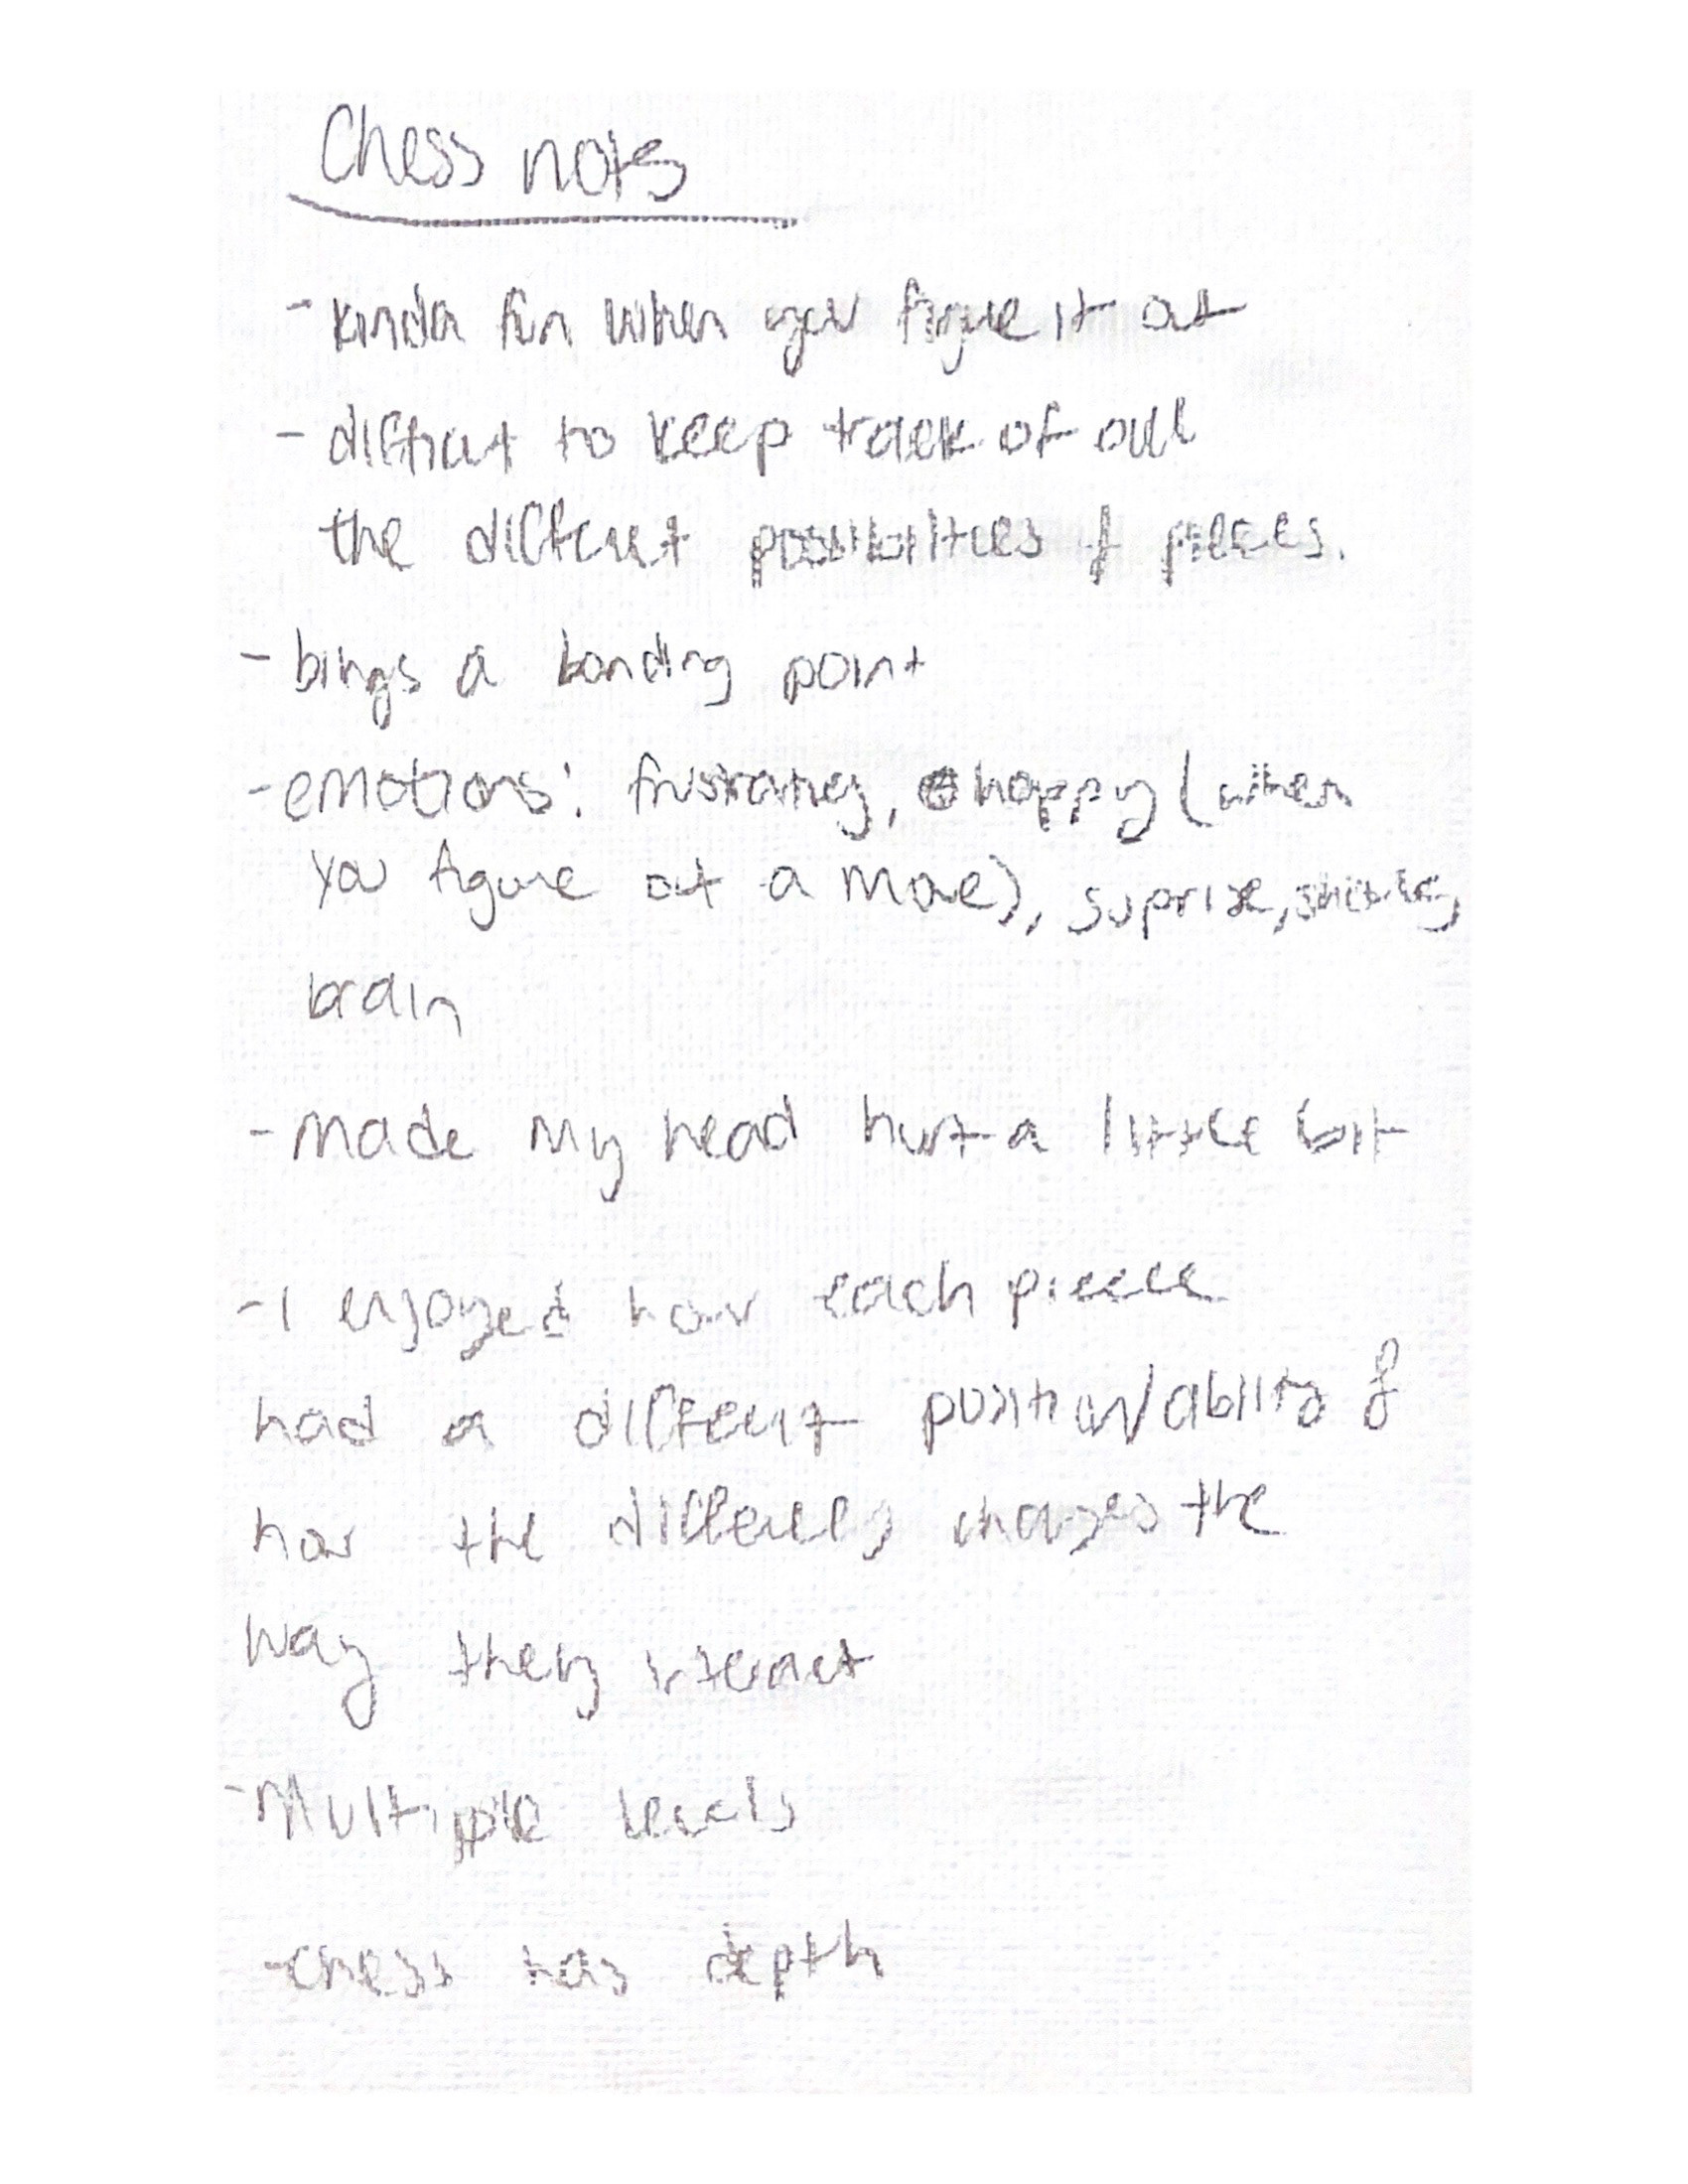 Chess nots
- kinda fun when you figure it out
- difficult to keep track of all
the different possibilities & pieces.
- bings a bonding point
- emotions: frustrating, happy (when
you figure out a move), suprise,
brain
- made my head hurt a little bit
- I enjoyed how each pieece
had a different position/ability &
how the changes the
way they interact
- Multiple levels
- chess has depth